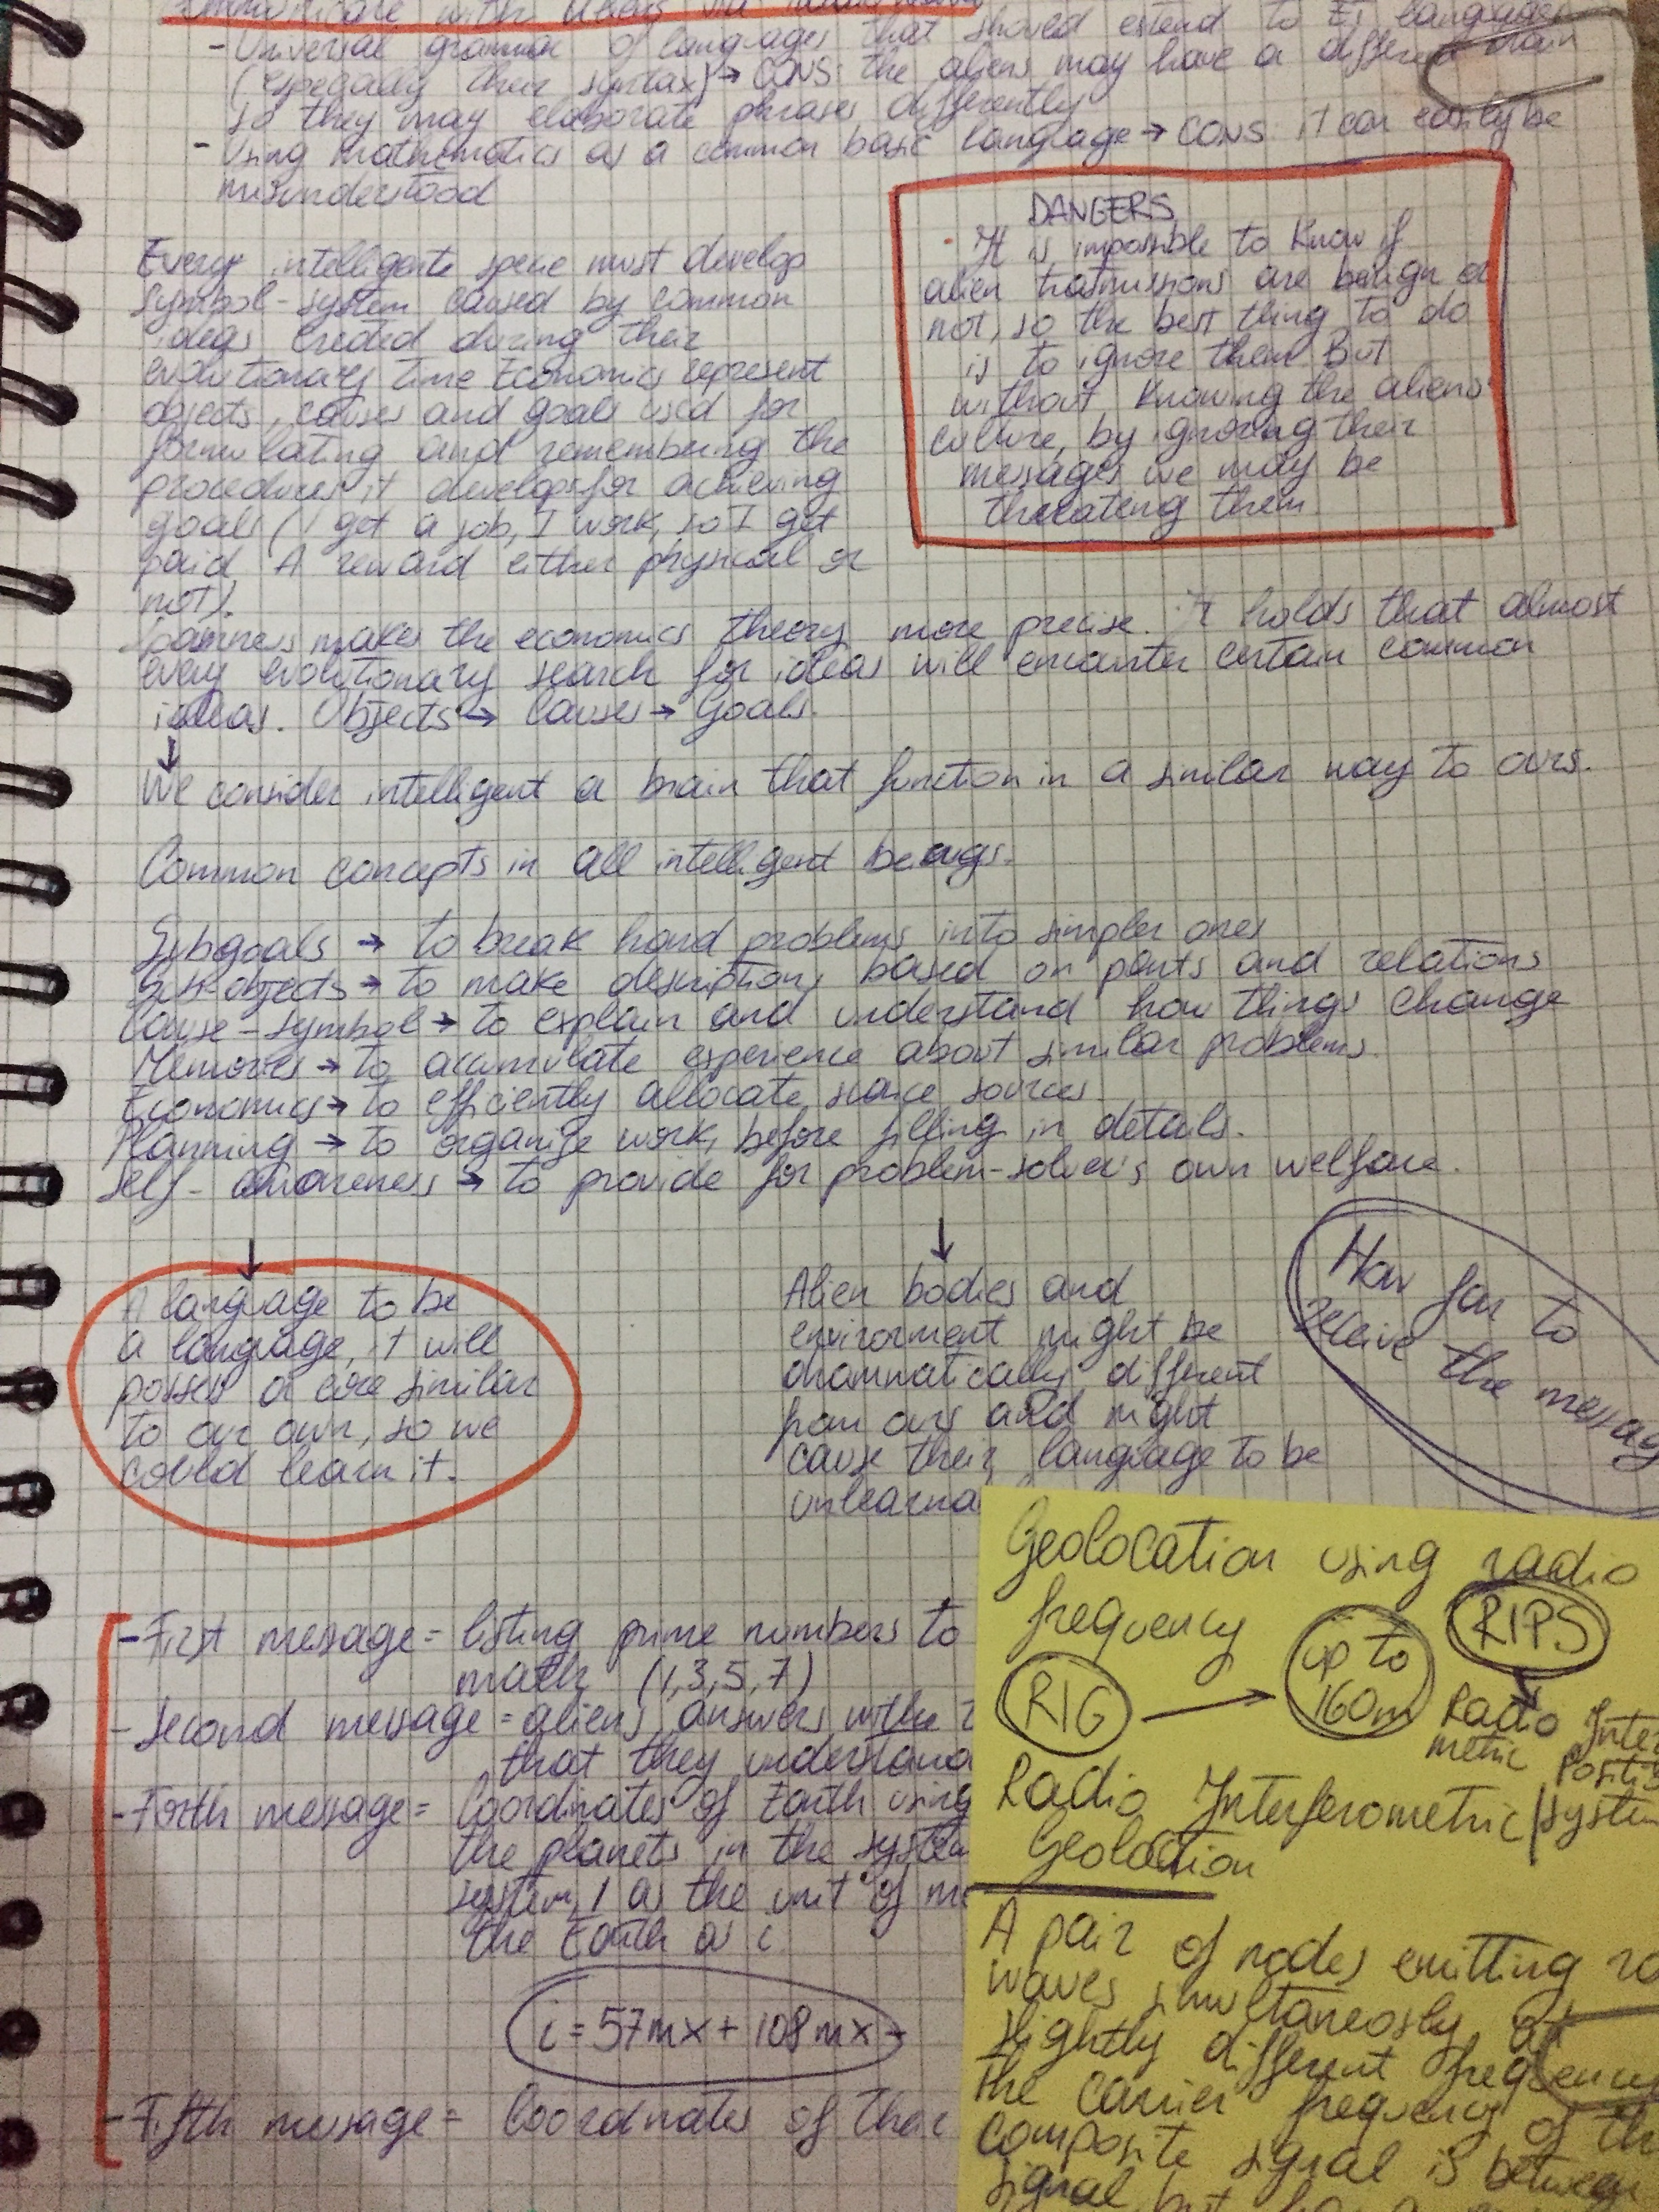 communicate with aliens via
- Universal grammar of languages that shoved extend to ETs languages
(especially their syntax) → CONS: the aliens may have a different brain
so they may elaborate phrases differently
- Using mathematics as a common basic language → CONS: it can easily be
misunderstood
DANGERS
· It is impossible to know if
alien trasmissions are benign or
not, so the best thing to do
is to ignore them. But
without knowing the aliens'
culture, by ignoring their
messages we may be
threateng them
Every intelligente specie must develop
symbol-system caused by common
ideas created during their
evolutionary time Economics represent
objects, causes and goals used for
formulating and remembering the
procedures it develops for achieving
goals (I get a job, I work, so I get
paid. A reward either physical or
not).
makes the economics theory more precise. It holds that almost
every evolutionary search for ideas will encounter certain common
ideas. Objects → Causes → Goals.
↓
We consider intelligent a brain that function in a similar way to ours.
Common concepts in all intelligent beings.
Subgoals → to break hard problems into simpler ones
Sub-objects → to make descriptions based on parts and relations
Cause-symbol → to explain and understand how things change
Memories → to accumulate experience about similar problems.
Economics → to efficiently allocate scarce sources.
Planning → to organize work, before filling in details.
Self-awareness → to provide for problem-solver's own welfare.
↓ ↓
A language to be
a language, it will
posses a core similar
to our own, so we
could learn it.
Alien bodies and
enviroment might be
drammatically different
from ours and might
cause their language to be
unlearna
How far to
receive the messag
- First message = listing prime numbers to
math (1,3,5,7)
- Second message = aliens answers withe
that they understand
- Forth message = Coordinates of Earth using
the planets in the system
system, 1 as the unit of me
the Earth as i
i = 57mx + 108mx +
- Fifth message = Coordinates of their
Geolocation using radio
frequency
RIPS
RIG → up to
160m
Radio Inter
metric Positi
System
Radio Interferometric
Geolocation
A pair of nodes emitting ra
waves simultaneosly at
slightly different frequency
The carrier frequency of th
composite signal is between
signal, but